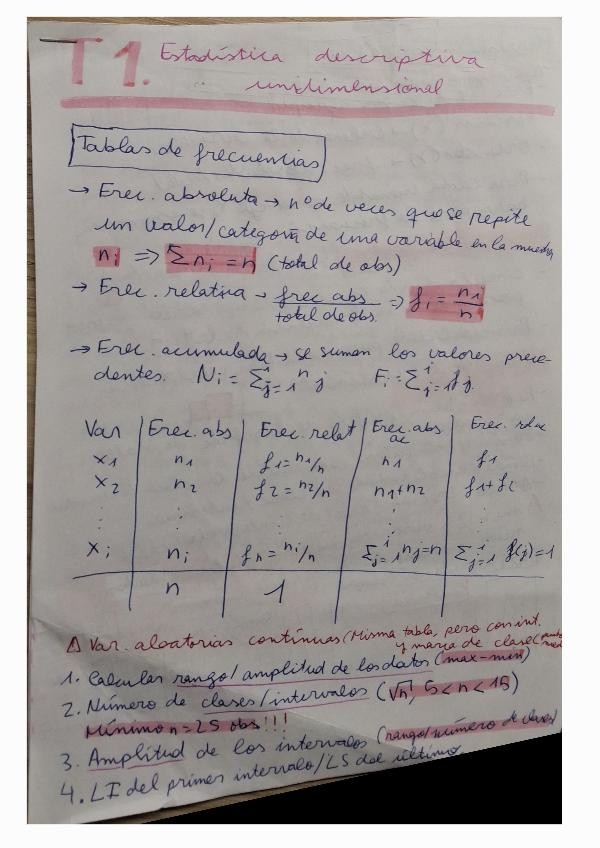 T1. Estadística descriptiva
unidimensional
Tablas de frecuencias
→ Frec. absoluta → nº de veces que se repite
un valor/categoría de una variable en la muestra
ni ⇒ Σni = n (total de obs)
→ Frec. relativa → frec abs / total de obs. ⇒ fi = ni/n
→ Frec. acumulada → se suman los valores prece-
dentes. Ni = Σ^i_{j=1} nj Fi = Σ^i_{j=1} fj
Var | Frec. abs | Frec. relat | Frec. abs ac | Frec. rel ac
x1 | n1 | f1 = n1/n | n1 | f1
x2 | n2 | f2 = n2/n | n1+n2 | f1+f2
⋮ | ⋮ | ⋮ | ⋮ | ⋮
xi | ni | fn = ni/n | Σ^i_{j=1} nj=n | Σ^i_{j=1} f(j)=1
n | 1
⚠ Var. aleatorias continuas (Misma tabla, pero con int.
y marca de clase (
1. Calcular rango/amplitud de los datos (max-min)
2. Número de clases/intervalos (√n, 5<n<15)
Mínimo n=25 obs!!!
3. Amplitud de los intervalos (rango/número de clases)
4. LI del primer intervalo/LS del último